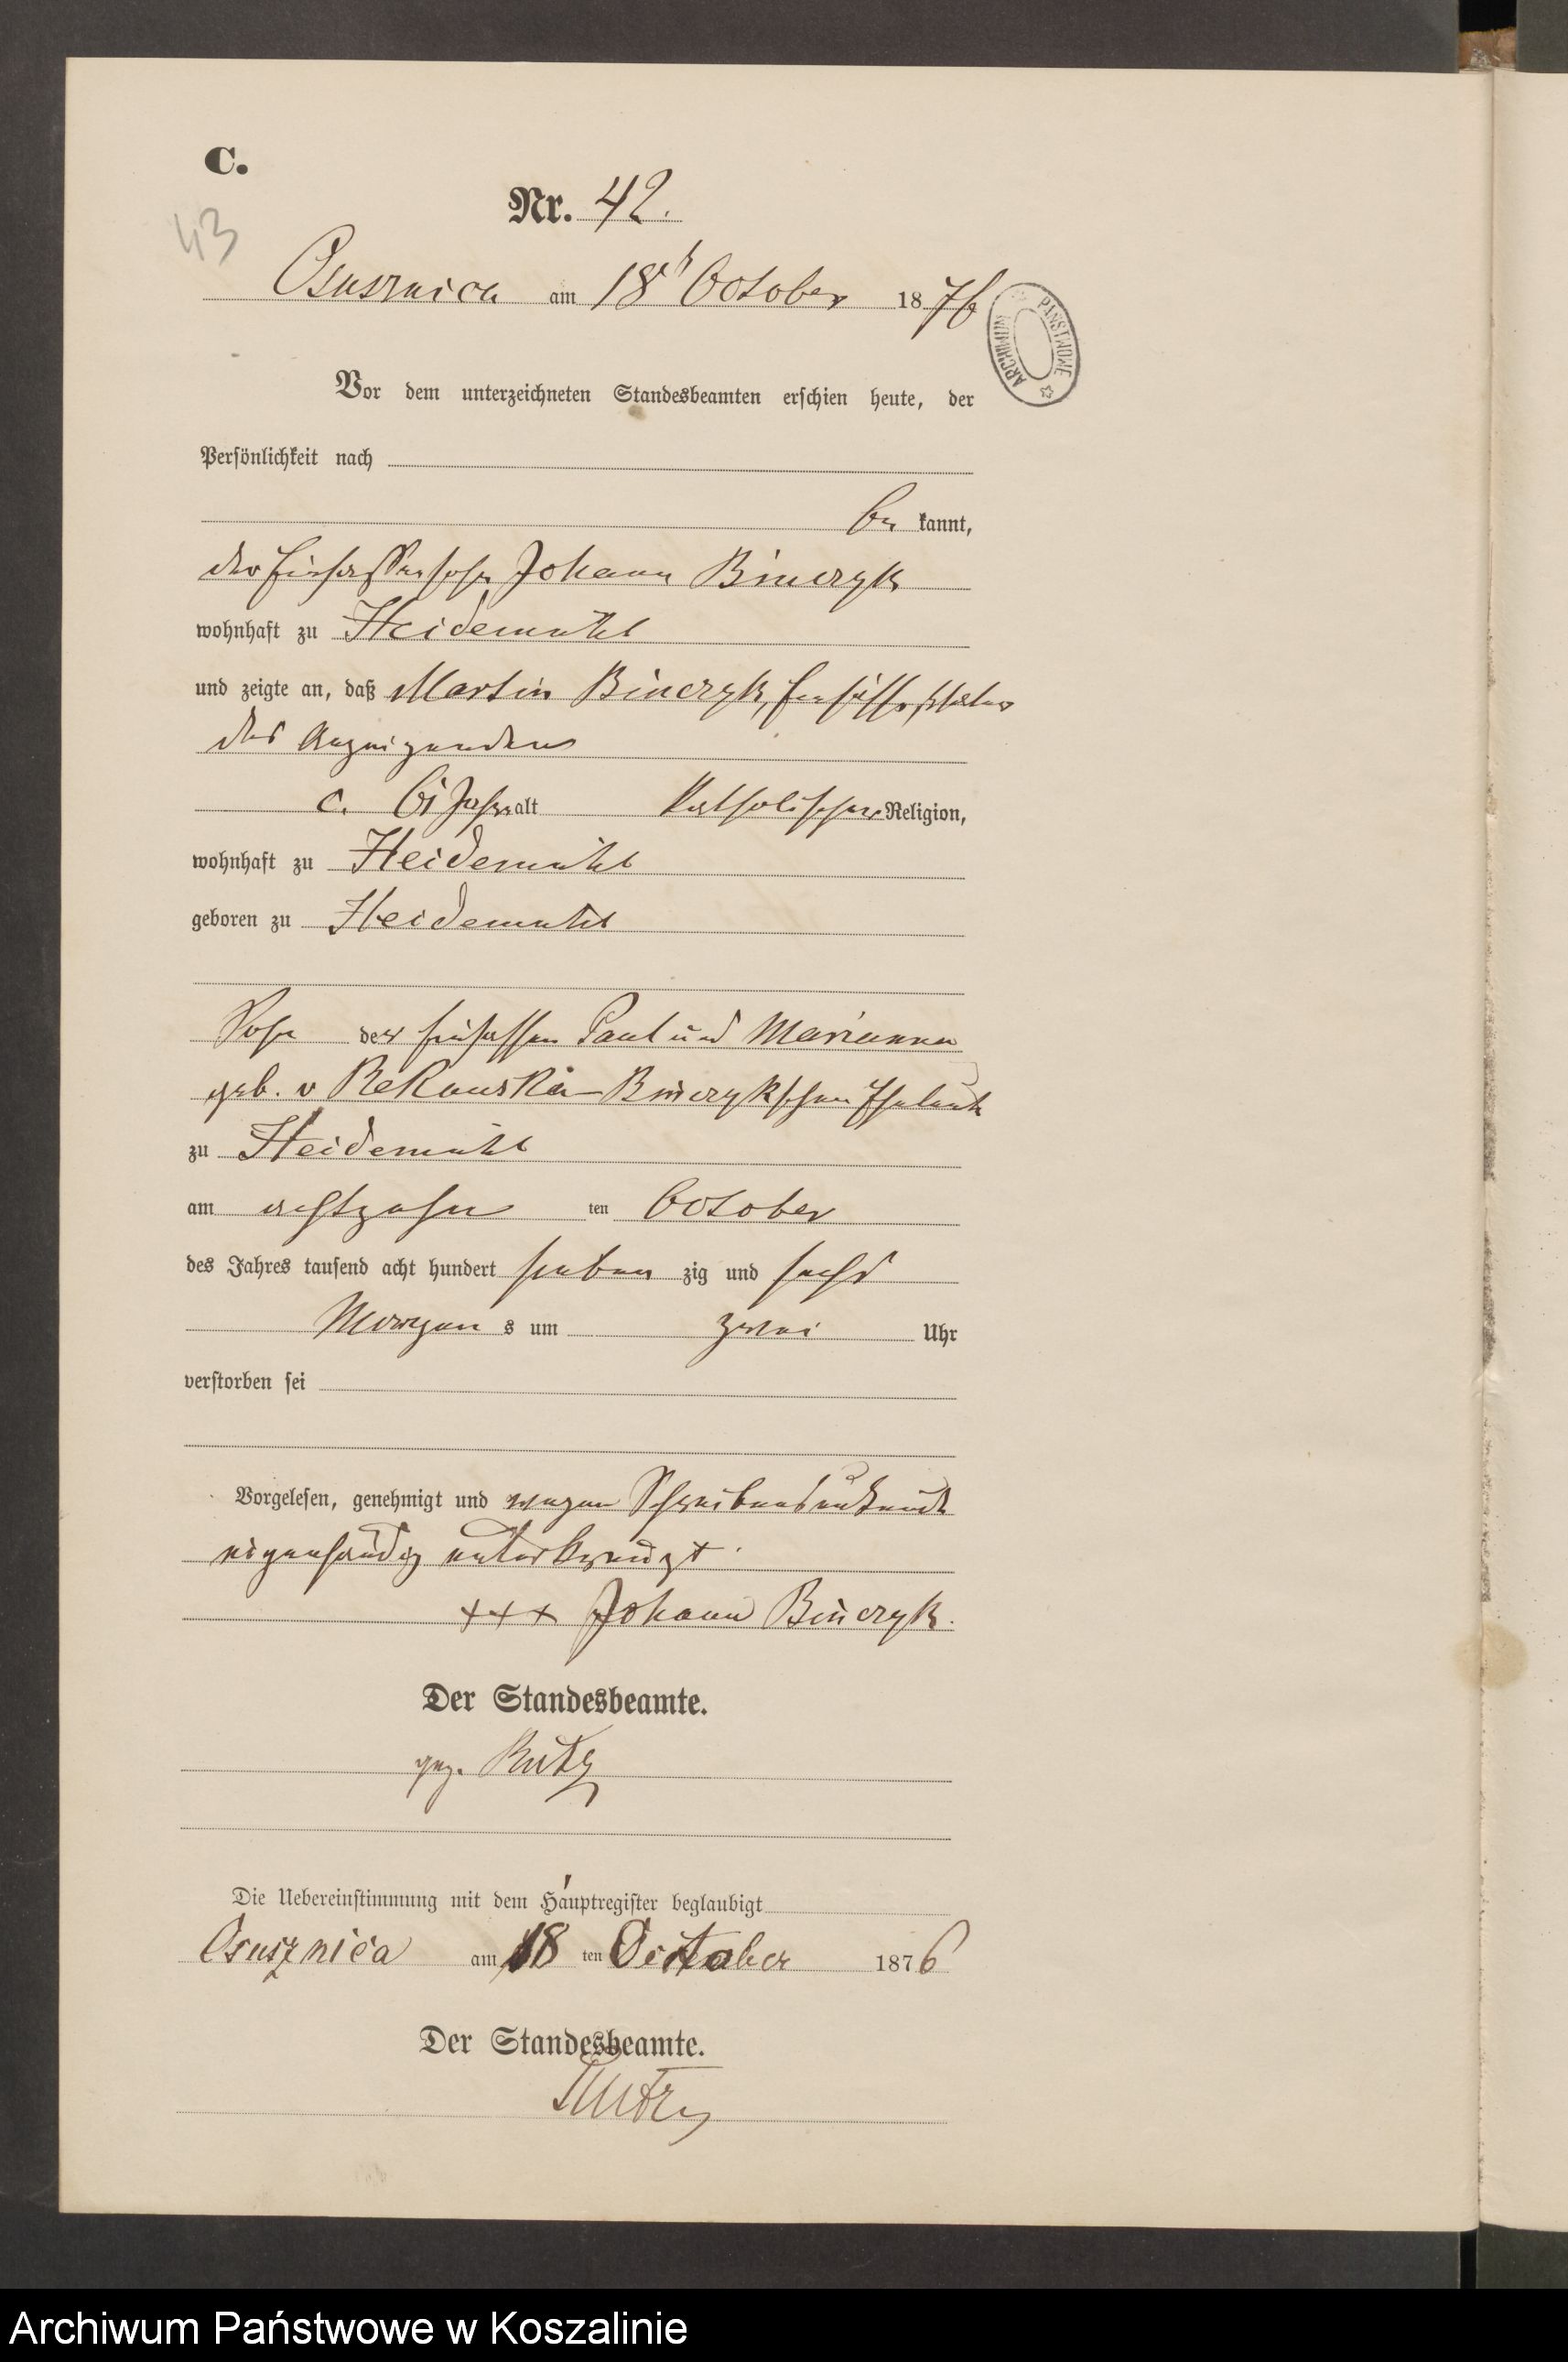 C.
Nr. 42.
43
Osusznica am 18t October 1876
ARCHIWUM PAŃSTWOWE
Vor dem unterzeichneten Standesbeamten erschien heute, der
Persönlichkeit nach
be kannt,
der Einsassensohn Johann Binczyk
wohnhaft zu Heidemühl
und zeigte an, daß Martin Binczyk,
des Anzeigenden
c. Jahr alt katholischer Religion,
wohnhaft zu Heidemühl
geboren zu Heidemühl
Sohn der Einsassen Paul und Marianna
geb. v Rekowska Binczykschen Eheleute
zu Heidemühl
am achtzehn ten October
des Jahres tausend acht hundert sieben zig und sechs
Morgen s um zwei Uhr
verstorben sei
Vorgelesen, genehmigt und wegen Schreibensunkunde
eigenhändig unterkreuzt.
+++ Johann Binczyk.
Der Standesbeamte.
gez. Rutz
Die Uebereinstimmung mit dem Hauptregister beglaubigt
Osusznica am 18 ten October 1876
Der Standesbeamte.
Rutz
Archiwum Państwowe w Koszalinie